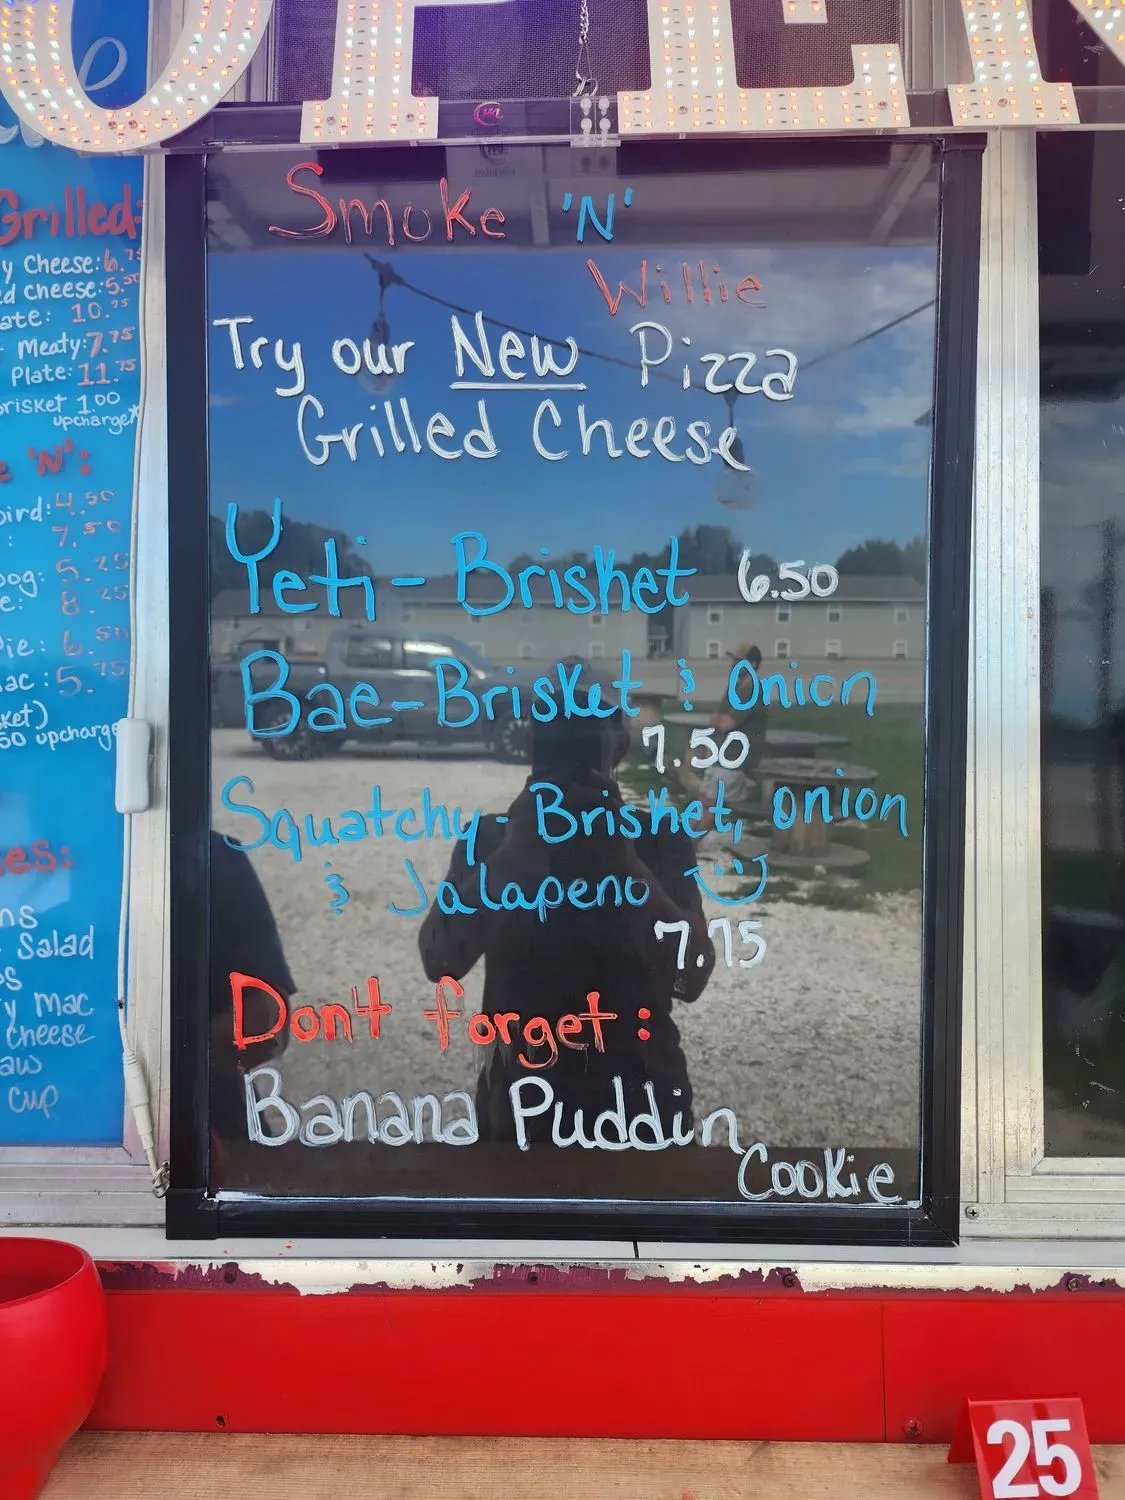 OPEN
Grilled:
y Cheese: 6.75
ed Cheese: 5.50
ate: 10.75
Meaty: 7.75
Plate: 11.75
brisket 1.00
upcharge*
e 'N':
bird: 4.50
: 7.50
Dog: 5.25
e: 8.25
ie: 6.50
ac: 5.75
ket)
50 upcharge
es:
ns
Salad
s
y Mac
Cheese
aw
Cup
Smoke 'N'
Willie
Try our New Pizza
Grilled Cheese
Yeti - Brisket 6.50
Bae - Brisket & Onion
7.50
Squatchy - Brisket, onion
& Jalapeno
7.75
Don't forget:
Banana Puddin
Cookie
25